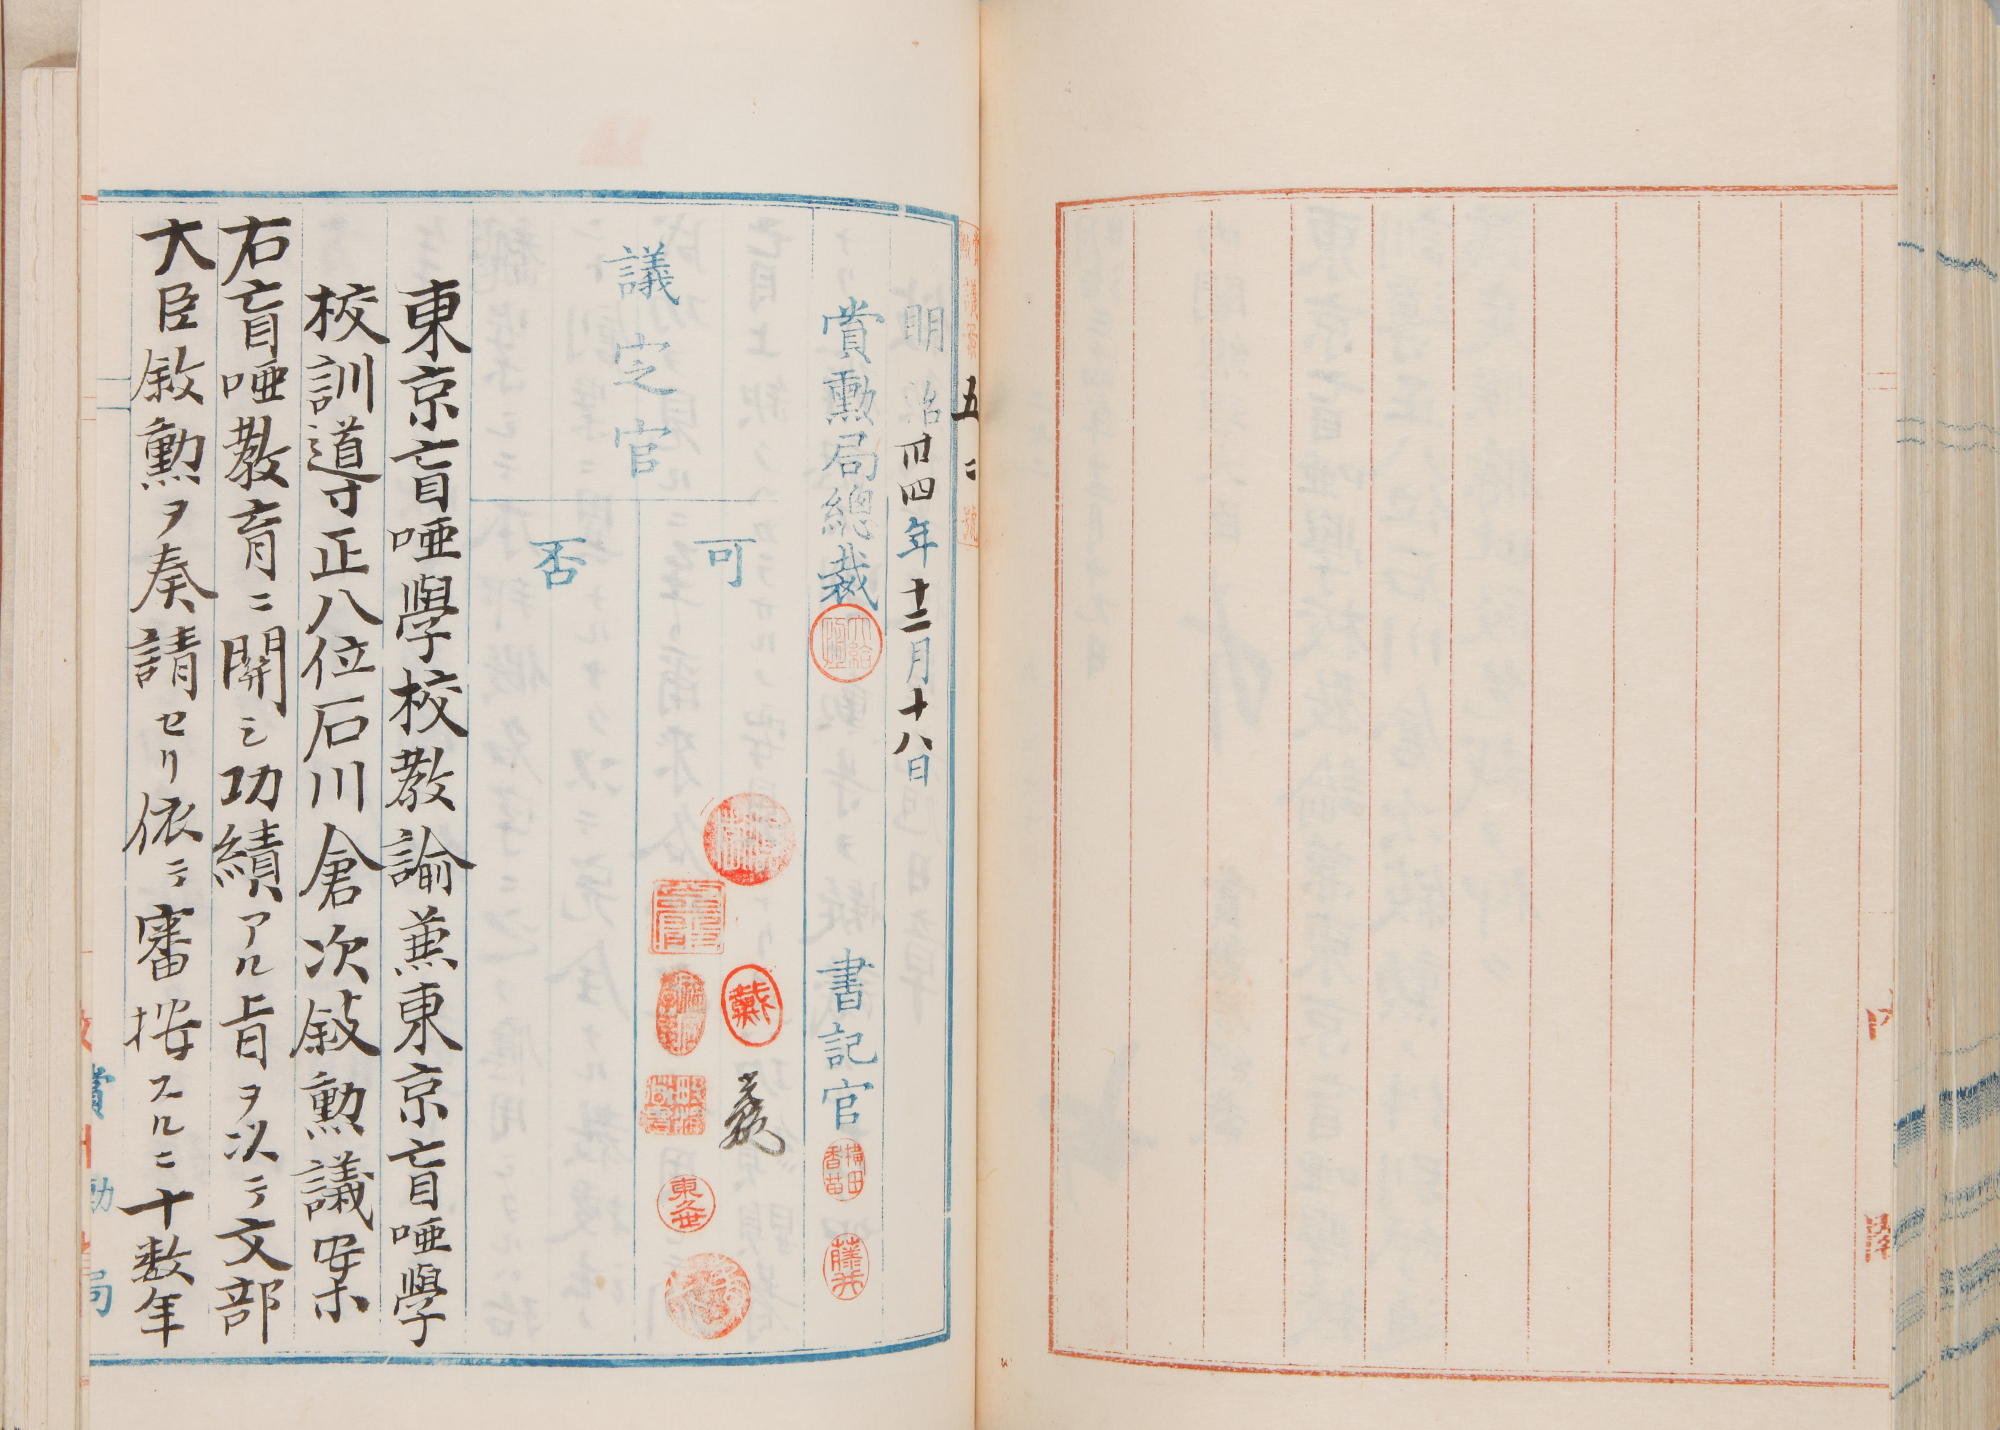 五二號
明治卅四年十二月十八日
賞勲局總裁
書記官
横田香苗
藤井
議定官
可
否
東久世
東京盲唖學校教諭兼東京盲唖學
校訓導正八位石川倉次敍勲議案
右盲唖教育ニ関シ功績アル旨ヲ以テ文部
大臣敍勲ヲ奏請セリ依テ審按スルニ十数年
賞勲局